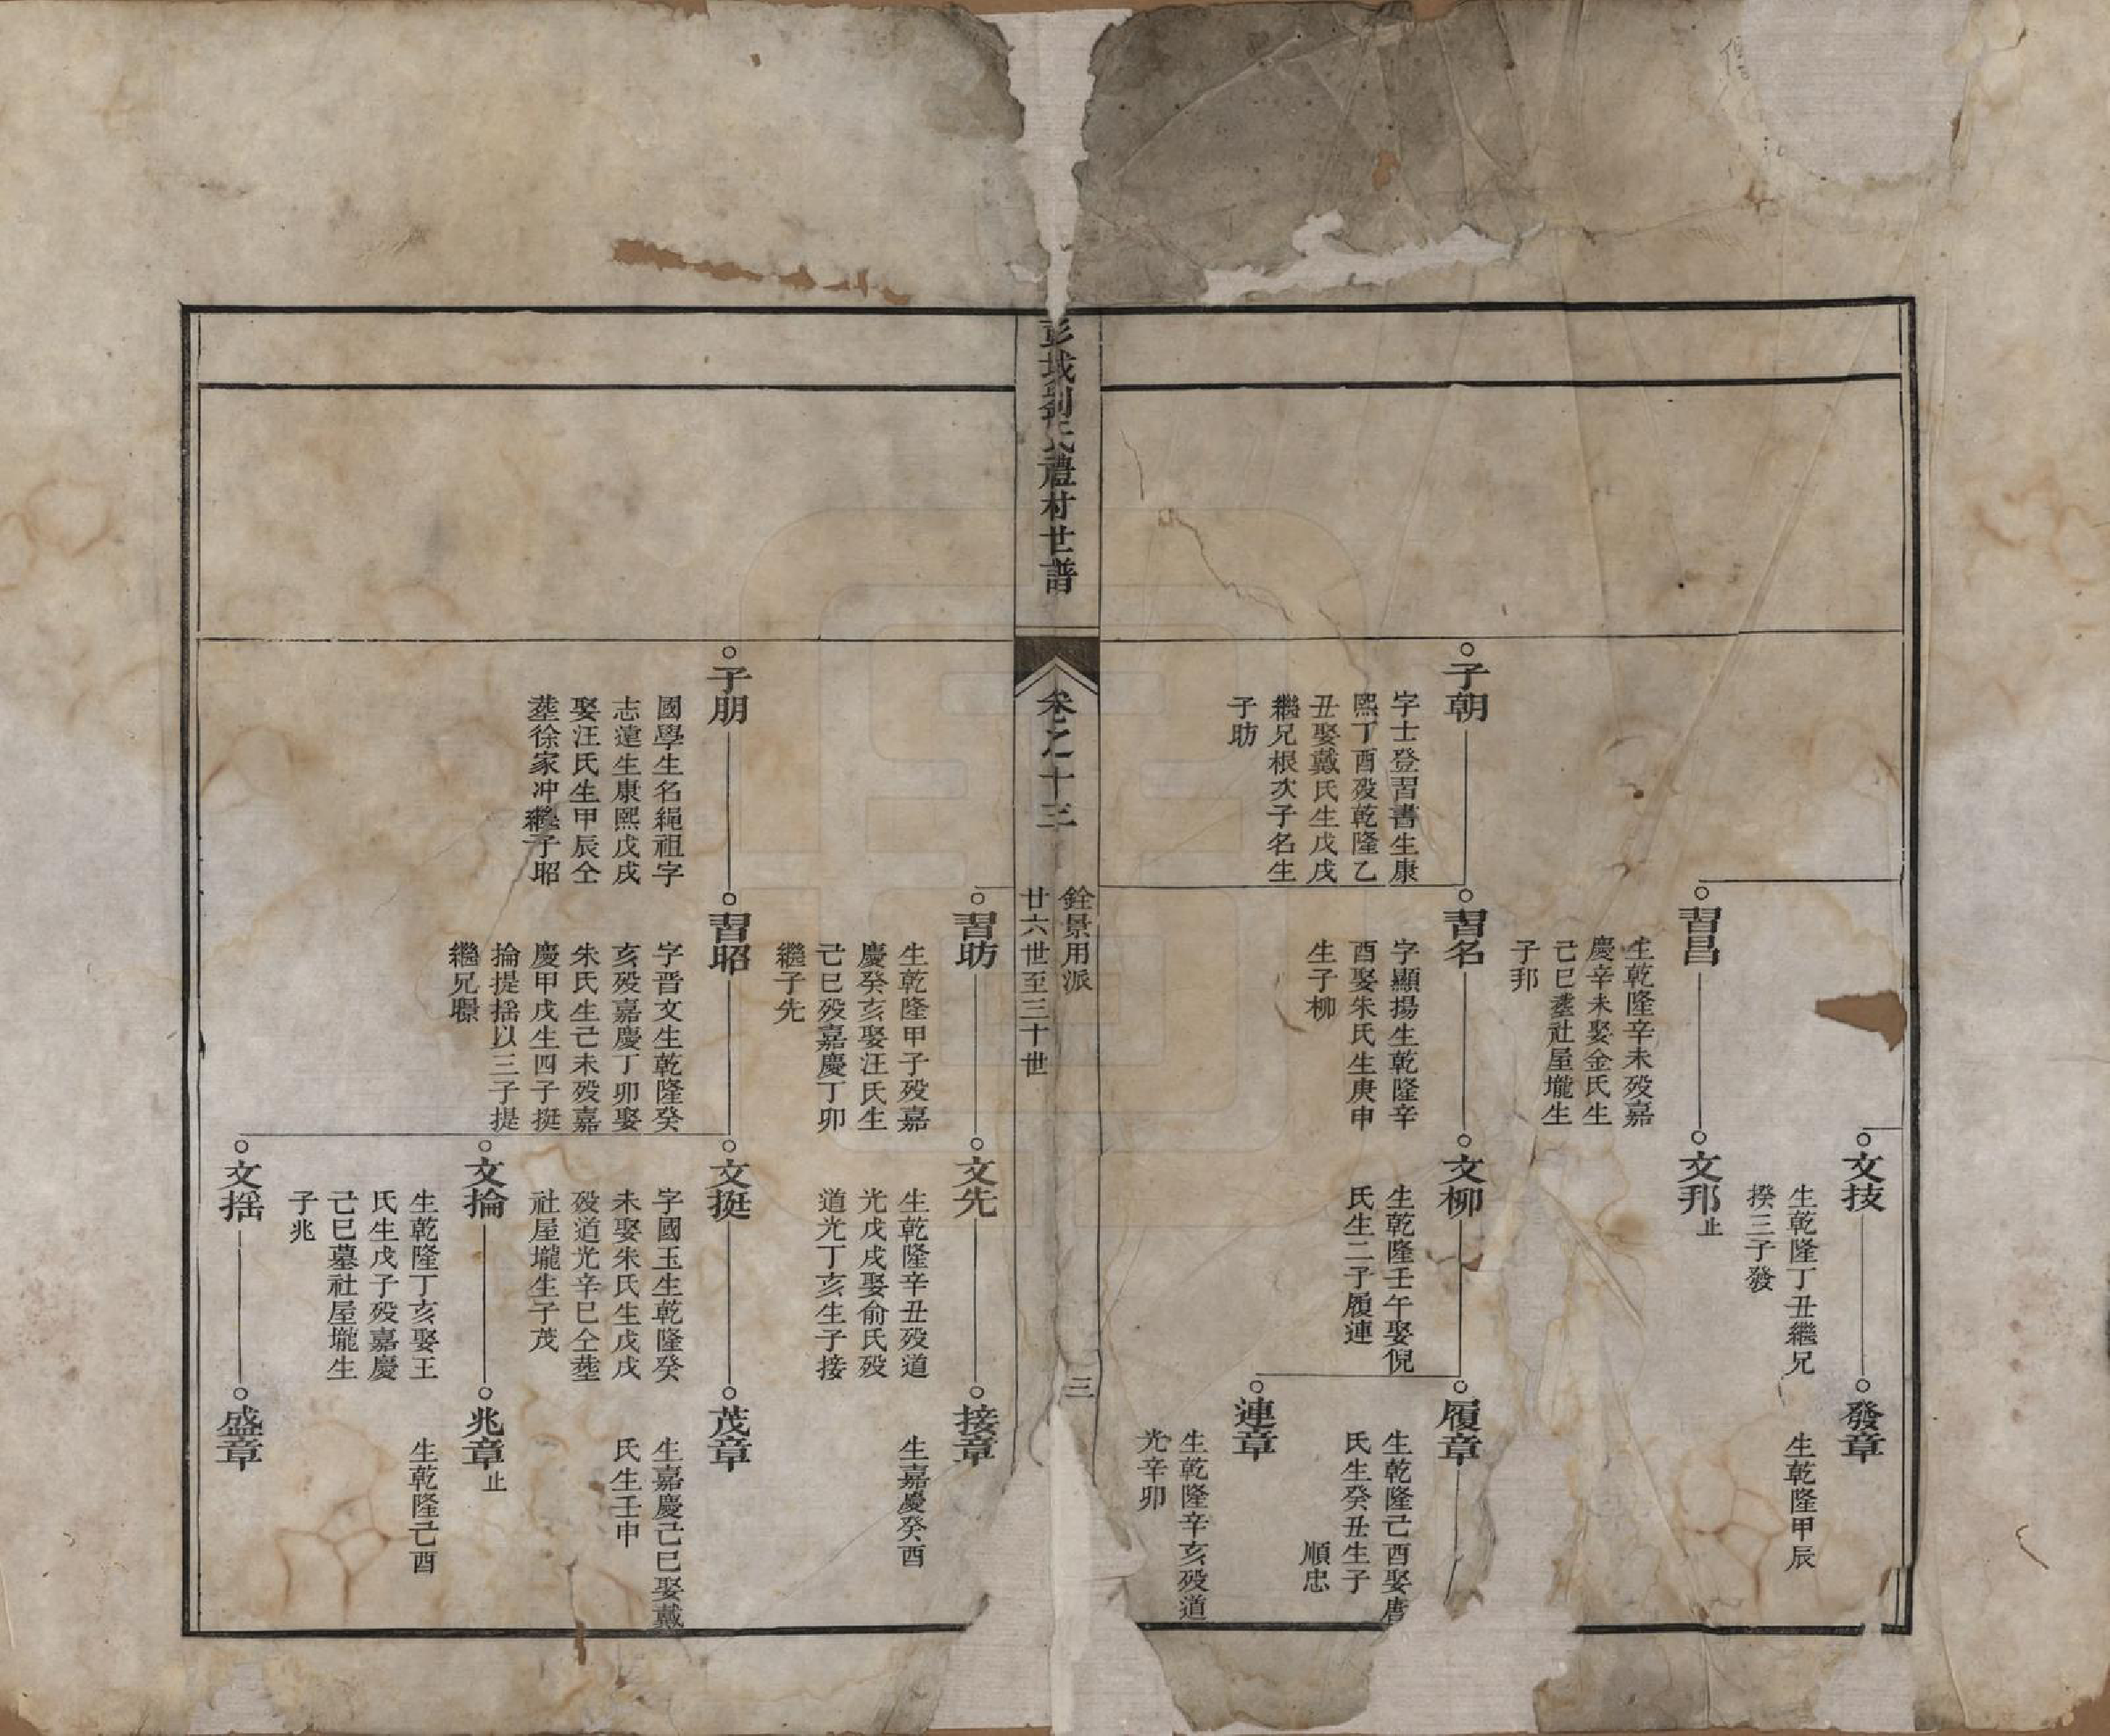 彭城劉氏禮村世譜
卷之十三
銓景用派
廿六世至三十世
三
子朝
字士登習書生康
熙丁酉歿乾隆乙
丑娶戴氏生戊戌
繼兄根次子名生
子昉
習昌
生乾隆辛未歿嘉
慶辛未娶金氏生
己巳塟社屋壠生
子邦
習名
字顯揚生乾隆辛
酉娶朱氏生庚申
生子柳
文技
生乾隆丁丑繼兄
揆三子發
文邦止
文柳
生乾隆壬午娶倪
氏生二子履連
發章
生乾隆甲辰
履章
生乾隆己酉娶唐
氏生癸丑生子
順忠
連章
生乾隆辛亥歿道
光辛卯
子朋
國學生名繩祖字
志遠生康熙戊戌
娶汪氏生甲辰仝
塟徐家冲繼子昭
習昉
生乾隆甲子歿嘉
慶癸亥娶汪氏生
己巳歿嘉慶丁卯
繼子先
習昭
字晋文生乾隆癸
亥歿嘉慶丁卯娶
朱氏生己未歿嘉
慶甲戌生四子挺
掄提揺以三子提
繼兄㬌
文先
生乾隆辛丑歿道
光戊戌娶俞氏歿
道光丁亥生子接
文挺
字國玉生乾隆癸
未娶朱氏生戊戌
歿道光辛巳仝塟
社屋壠生子茂
文掄
生乾隆丁亥娶王
氏生戊子歿嘉慶
己巳墓社屋壠生
子兆
文揺
接章
生嘉慶癸酉
茂章
生嘉慶己巳娶戴
氏生壬申
兆章止
生乾隆己酉
盛章